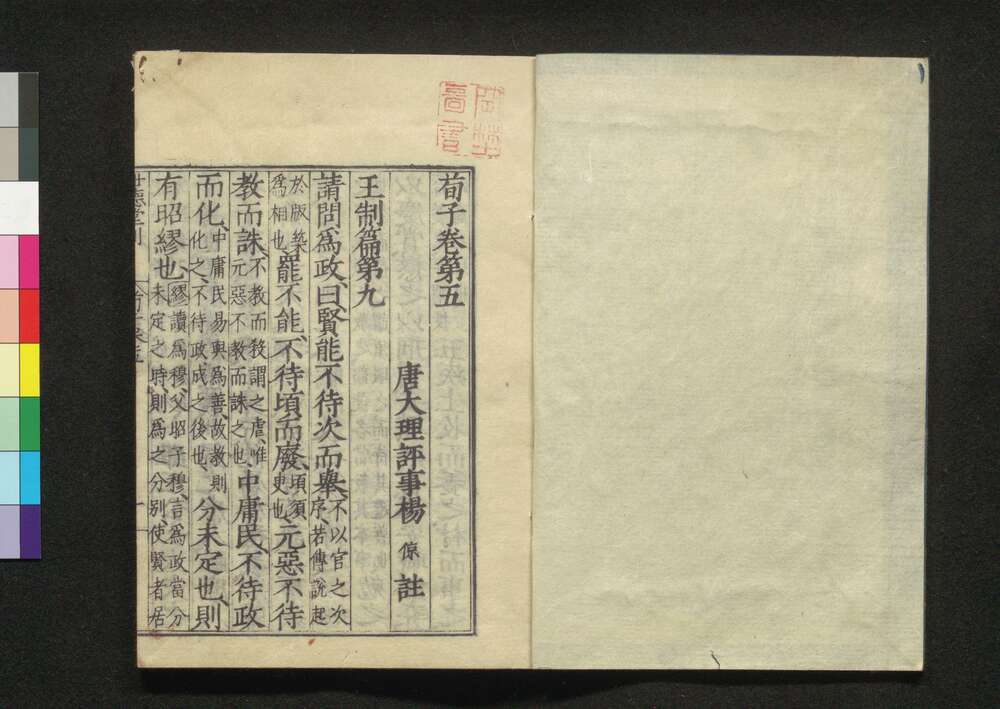 荀子卷第五
唐大理評事楊 倞 註
王制篇第九
請問爲政、曰賢能不待次而舉、不以官之次序、若傳說起
於版築爲相也罷不能、不待頃而廢、頃須臾也、元惡不待
教而誅、不教而殺謂之虐、唯元惡不教而誅之也、中庸民、不待政
而化、中庸民易與爲善、故教則化之、不待政成之後也、分未定也、則
有昭繆也、繆讀爲穆、父昭子穆、言爲政當分未定之時、則爲之分別、使賢者居
世德堂刊 荀子卷五 一
圖書